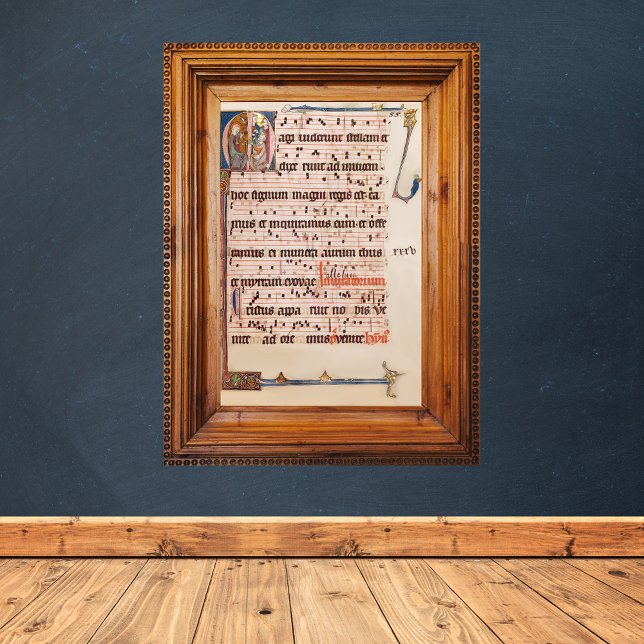 Magi uiderunt stellam et
dixe runt ad inuicem
hoc signum magni regis est ea
mus et inquiramus eum et offe
ramus ei munera aurum thus
xxxv
et myrram euouae alleluia Inuitatorium
Cristus appa ruit no bis Ve
nite ad ore mus Venite